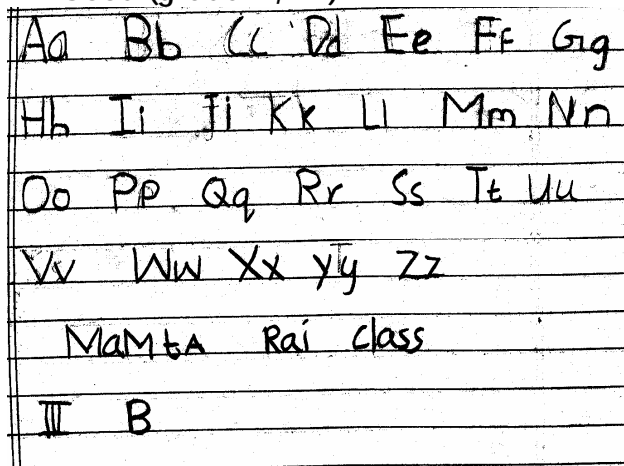 Aa Bb Cc Dd Ee Ff Gg
Hh Ii Jj Kk Ll Mm Nn
Oo Pp Qq Rr Ss Tt Uu
Vv Ww Xx Yy Zz
MaMtA Rai class
III B